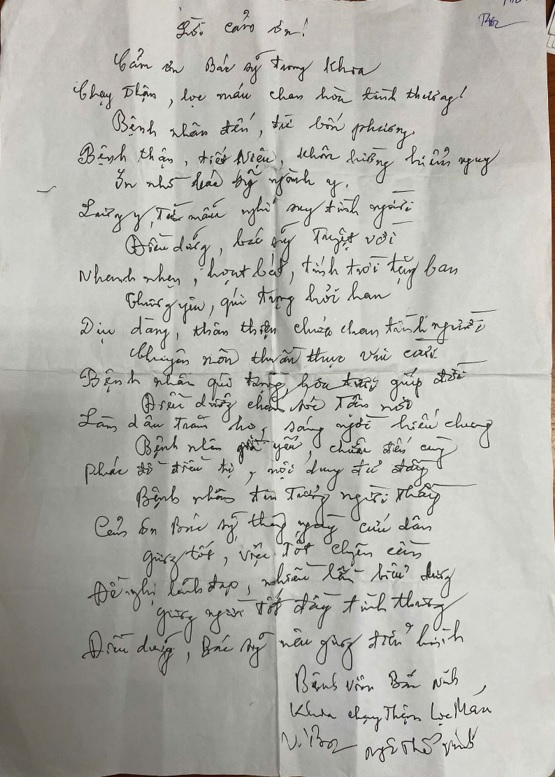 Lời cảm ơn!
Cảm ơn Bác sỹ trong khoa
Chạy thận, lọc máu chan hòa tình thương!
Bệnh nhân đến, từ bốn phương
Bệnh thận, tiết niệu, khôn lường hiểm nguy
Ơn nhờ bác sỹ ngành y.
Lương y, từ mẫu nghĩ suy tình người
Điều dưỡng, bác sỹ tuyệt vời
Nhanh nhẹn, hoạt bát, tính trời tặng ban
Thương yêu, quí trọng hỏi han
Dịu dàng, thân thiện chứa chan tình người
Chuyên môn thuần thục vui cười
Bệnh nhân quí tặng, hoa tươi giúp đời
Điều dưỡng chăm sóc tận nơi
Làm dâu trăm họ, sáng ngời hiếu chung
Bệnh nhân già yếu, đến cùng
Phác đồ điều trị, nội dung từ đây
Bệnh nhân tin tưởng người thầy
Cảm ơn Bác sỹ tháng ngày cứu dân
Gương tốt, việc tốt chuyên cần
Đề nghị lãnh đạo, nhiều lần biểu dương
Gương người tốt đầy tình thương
Điều dưỡng, Bác sỹ nêu gương điển hình
Bệnh viện Bắc Ninh
Khoa chạy Thận Lọc Máu